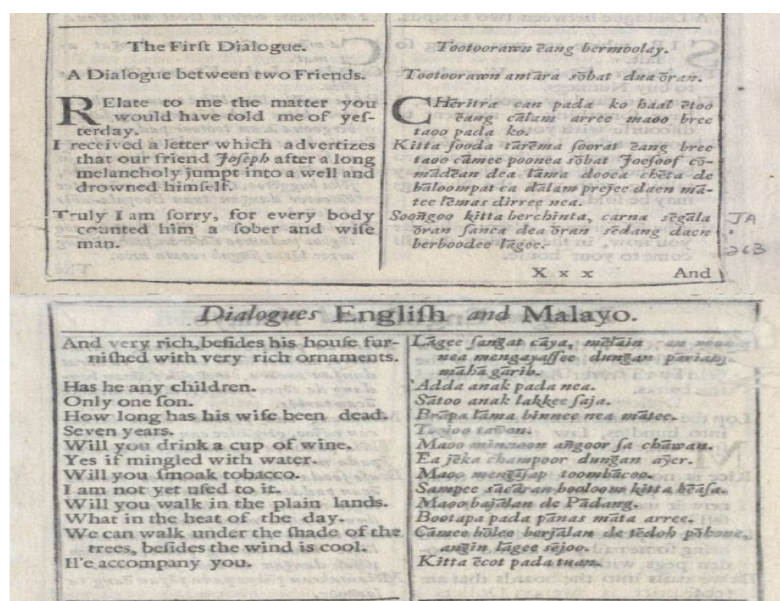 The Firſt Dialogue.
A Dialogue between two Friends.
RElate to me the matter you
would have told me of yeſ-
terday.
I received a letter which advertizes
that our friend Joſeph after a long
melancholy jumpt into a well and
drowned himſelf.
Truly I am ſorry, for every body
counted him a ſober and wiſe
man.
Tootoorawn ēang bermoolay.
Tootoorawn antāra sōbat dua ōran.
CHēritra can pada ko haal ētoo
ēang cālam arree maoo bree
taoo pada ko.
Kitta ſooda tarēma ſoorat ēang bree
taoo cāmee poonea sōbat Joeſoof cō-
mādēan dea lāma dooca chēta de
bāloompat ca dālam prejee daen mā-
tee lēmas dirree nea.
Soongoo kitta berchinta, carna sēgāla
ōran ſanca dea ōran sēdang daen
berboodee lāgee.
JA
263
X x x And
Dialogues Engliſh and Malayo.
And very rich, beſides his houſe fur-
niſhed with very rich ornaments.
Has he any children.
Only one ſon.
How long has his wife been dead.
Seven years.
Will you drink a cup of wine.
Yes if mingled with water.
Will you ſmoak tobacco.
I am not yet uſed to it.
Will you walk in the plain lands.
What in the heat of the day.
We can walk under the ſhade of the
trees, beſides the wind is cool.
I'e accompany you.
Lāgee ſangat cāya, mēlain
nea mengayaſſee dungan
māhā garib.
Adda anak pada nea.
Sātoo anak lakkee ſaja.
Brāpa lāma binnee nea mātee.
Toojoo tawon.
Maoo minnoon angoor ſa chāwan.
Ea jēka champoor dungan āyer.
Maoo mengīſap toombācoo.
Sampee sācāran booloom kitta bēāſa.
Maoo bajālan de Pādang.
Bootapa pada pānas māta arree.
Cāmee bōlee berjālan de tēdoh pōhone,
angin lāgee sējoo.
Kitta ēcot pada tuan.